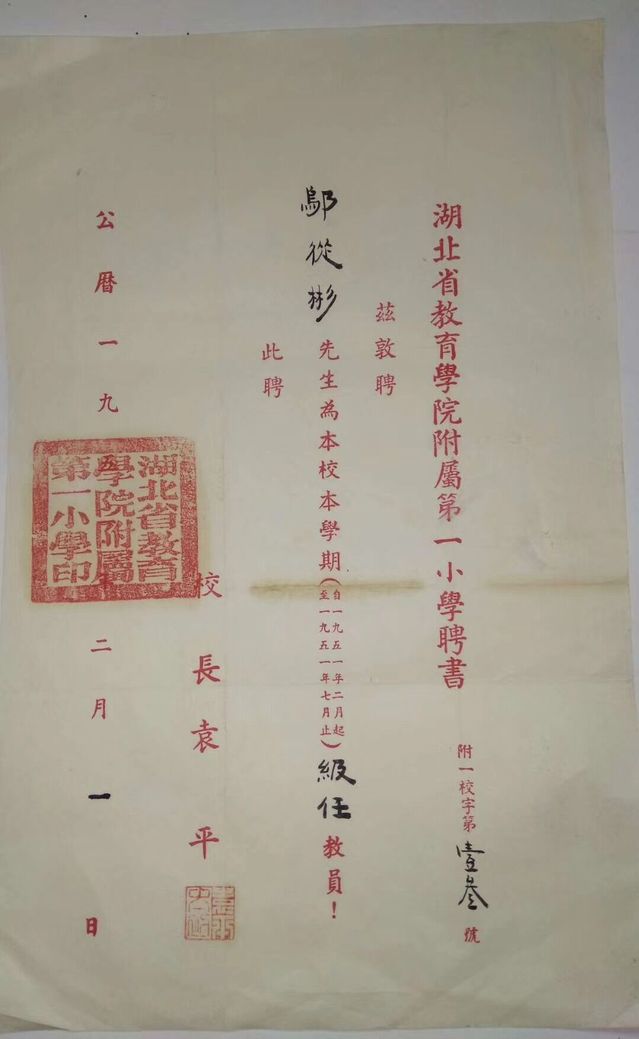 湖北省教育學院附屬第一小學聘書
附一校字第壹叄號
茲敦聘
鄔從彬先生為本校本學期(自一九五一年二月起至一九五一年七月止)級任教員！
此聘
校長袁平
公曆一九
年二月一日
湖北省教育
學院附屬
第一小學印